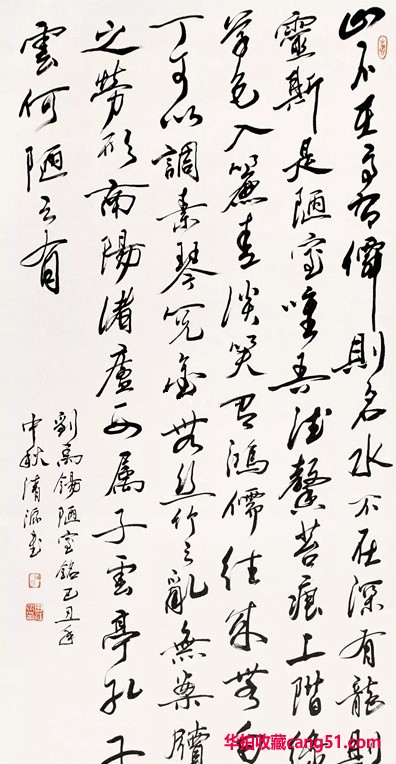 山不在高有僊則名水不在深有龍則
靈斯是陋室唯吾德馨苔痕上階綠
草色入簾青談笑有鴻儒往來無白
丁可以調素琴閱金無絲竹之亂無案牘
之勞形南陽諸廬西屬子雲亭孔子
雲何陋之有
劉禹錫陋室銘己丑年
中秋清源書
华拍收藏cang51.com